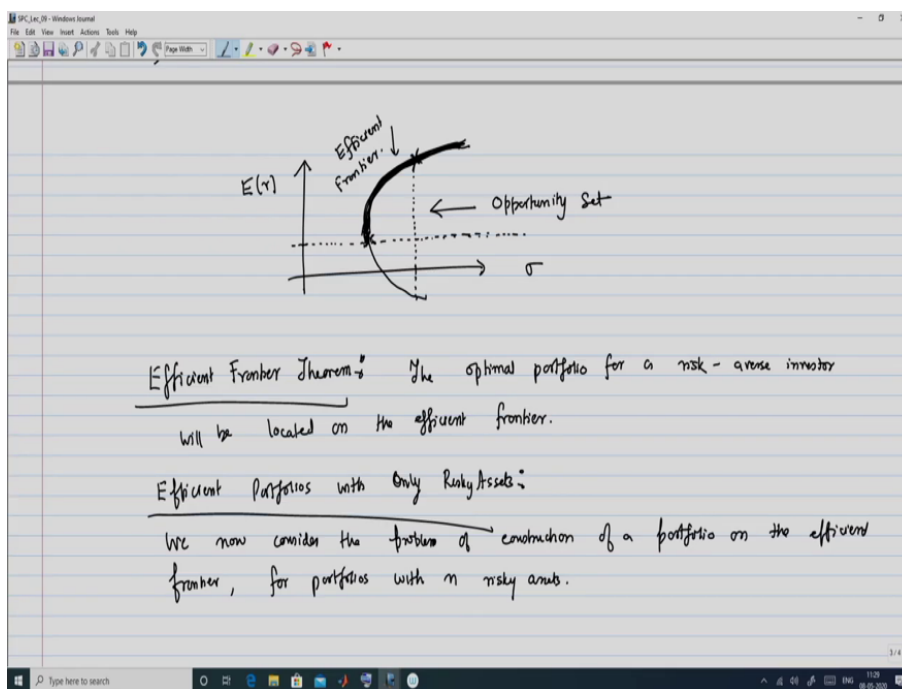 SPC_Lec_09 - Windows Journal
File Edit View Insert Actions Tools Help
Page Width
Efficient
frontier.
E(r)
Opportunity Set
σ
Efficient Frontier Theorem: The optimal portfolio for a risk-averse investor
will be located on the efficient frontier.
Efficient Portfolios with Only Risky Assets:
We now consider the problem of construction of a portfolio on the efficient
frontier, for portfolios with n risky assets.
3/4
Type here to search
ENG
11:29
08-05-2020